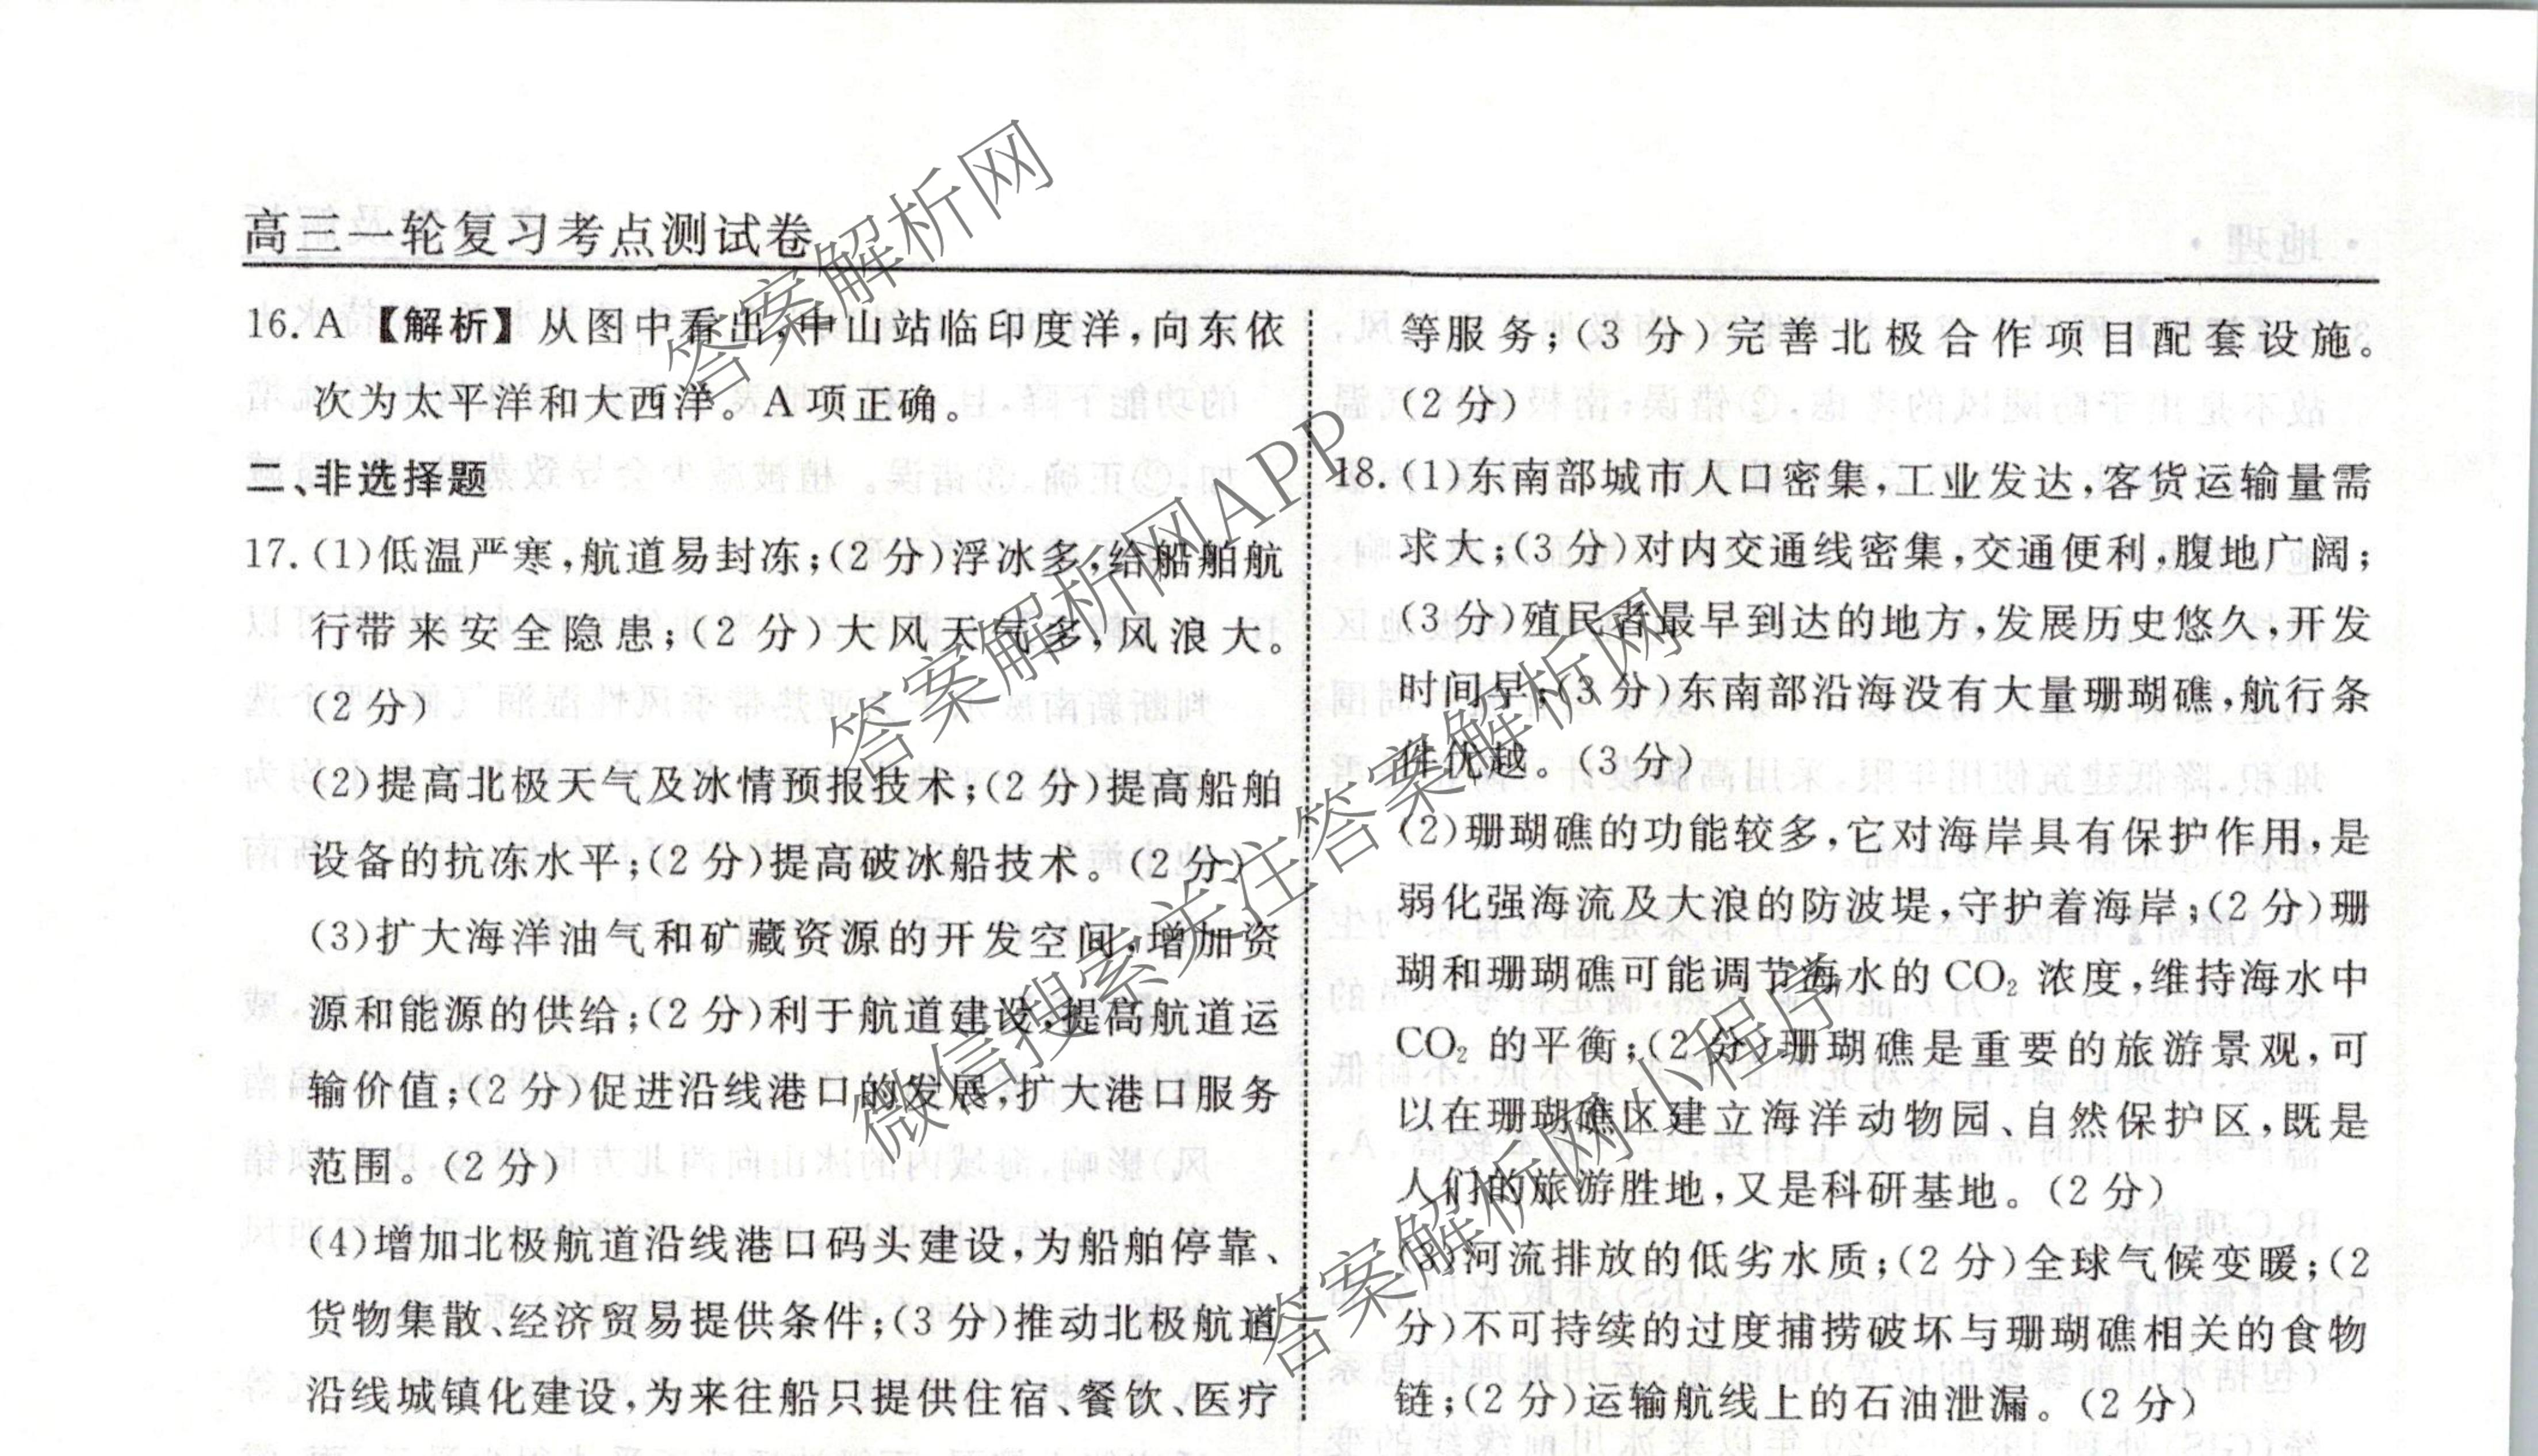 高三一轮复习考点测试卷
16. A 【解析】从图中看出,中山站临印度洋,向东依
次为太平洋和大西洋。A项正确。
二、非选择题
17. (1)低温严寒,航道易封冻;(2分)浮冰多,给船舶航
行带来安全隐患;(2分)大风天气多,风浪大。
(2分)
(2)提高北极天气及冰情预报技术;(2分)提高船舶
设备的抗冻水平;(2分)提高破冰船技术。(2分)
(3)扩大海洋油气和矿藏资源的开发空间,增加资
源和能源的供给;(2分)利于航道建设,提高航道运
输价值;(2分)促进沿线港口的发展,扩大港口服务
范围。(2分)
(4)增加北极航道沿线港口码头建设,为船舶停靠、
货物集散、经济贸易提供条件;(3分)推动北极航道
沿线城镇化建设,为来往船只提供住宿、餐饮、医疗
等服务;(3分)完善北极合作项目配套设施。
(2分)
18. (1)东南部城市人口密集,工业发达,客货运输量需
求大;(3分)对内交通线密集,交通便利,腹地广阔;
(3分)殖民者最早到达的地方,发展历史悠久,开发
时间早;(3分)东南部沿海没有大量珊瑚礁,航行条
件优越。(3分)
(2)珊瑚礁的功能较多,它对海岸具有保护作用,是
弱化强海流及大浪的防波堤,守护着海岸;(2分)珊
瑚和珊瑚礁可能调节海水的CO₂浓度,维持海水中
CO₂的平衡;(2分)珊瑚礁是重要的旅游景观,可
以在珊瑚礁区建立海洋动物园、自然保护区,既是
人们的旅游胜地,又是科研基地。(2分)
(3)河流排放的低劣水质;(2分)全球气候变暖;(2
分)不可持续的过度捕捞破坏与珊瑚礁相关的食物
链;(2分)运输航线上的石油泄漏。(2分)
答案解析网
答案解析网APP
微信搜索关注答案解析网
答案解析网小程序